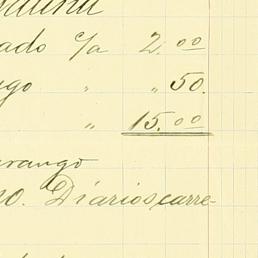 ado c/a 2.00
go " " 50.
" 15.00
urango
no. Diarios, carre-